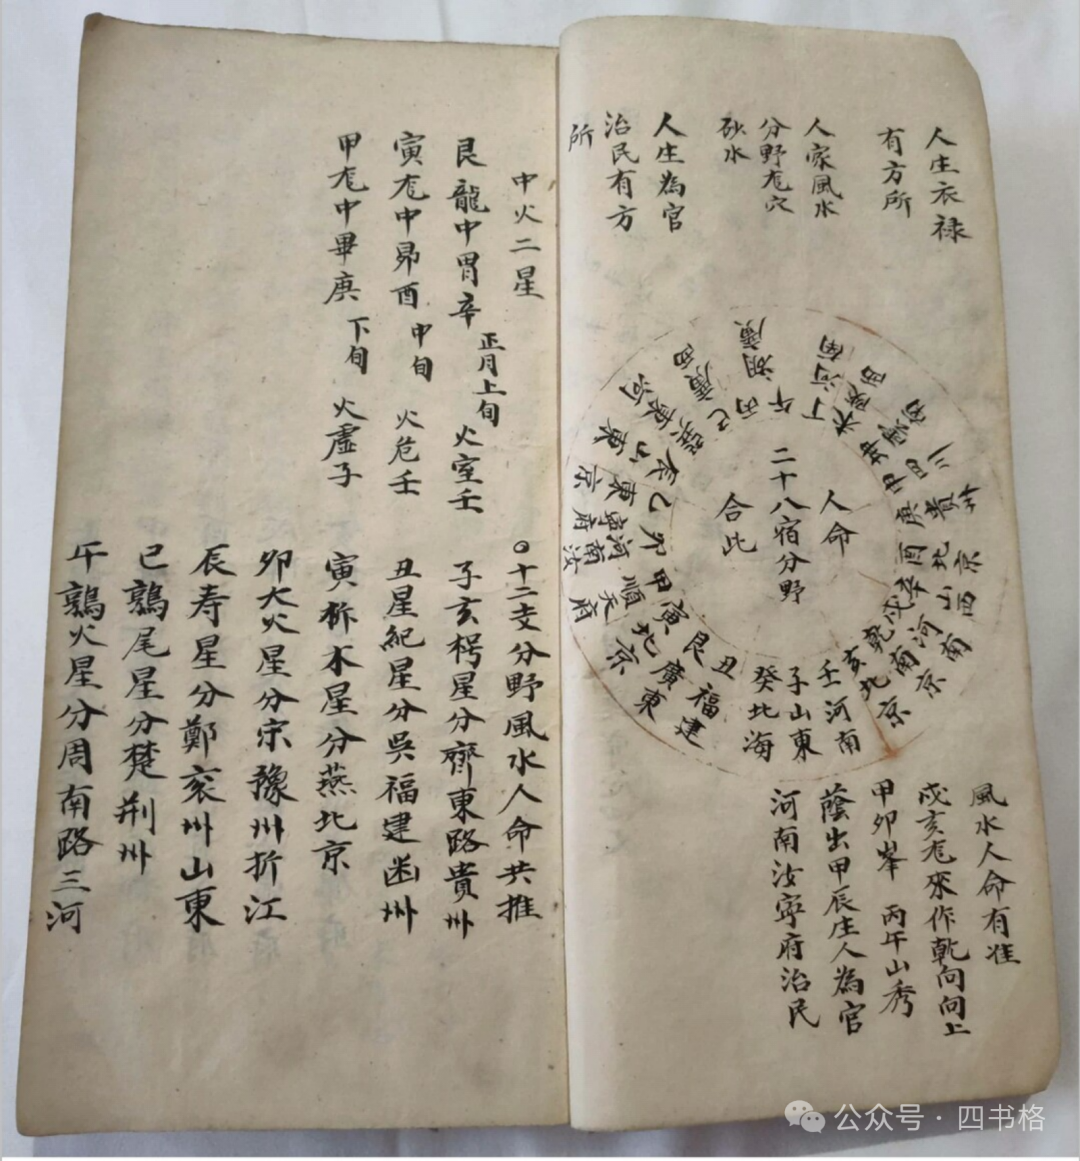 人生衣禄
有方所
人家風水
分野龙穴
砂水
人生為官
治民有方
所
二十八宿分野
人命
合此
壬河南
子山東
癸北海
丑福建
艮廣東
寅北京
甲順天府
卯河南汝寧府
乙東京
辰山東
巽東河
巳廣西
丙
午湖廣
丁河南
未陝西
坤雲南
申四川
庚貴州
酉北京
辛山西
戌河南
乾南京
亥北京
風水人命有准
戌亥龙來作乾向向上
甲卯峯 丙午山秀
蔭出甲辰庄人為官
河南汝寧府治民
中火二星
艮龍中胃辛 正月上旬 火室壬
寅龙中昴酉 中旬 火危壬
甲龙中畢庚 下旬 火虛子
○十二支分野風水人命共推
子亥枵星分齊東路貴州
丑星紀星分吳福建幽州
寅柝木星分燕北京
卯大火星分宗豫州折江
辰寿星分鄭衮州山東
巳鶉尾星分楚荆州
午鶉火星分周南路三河
公众号·四书格